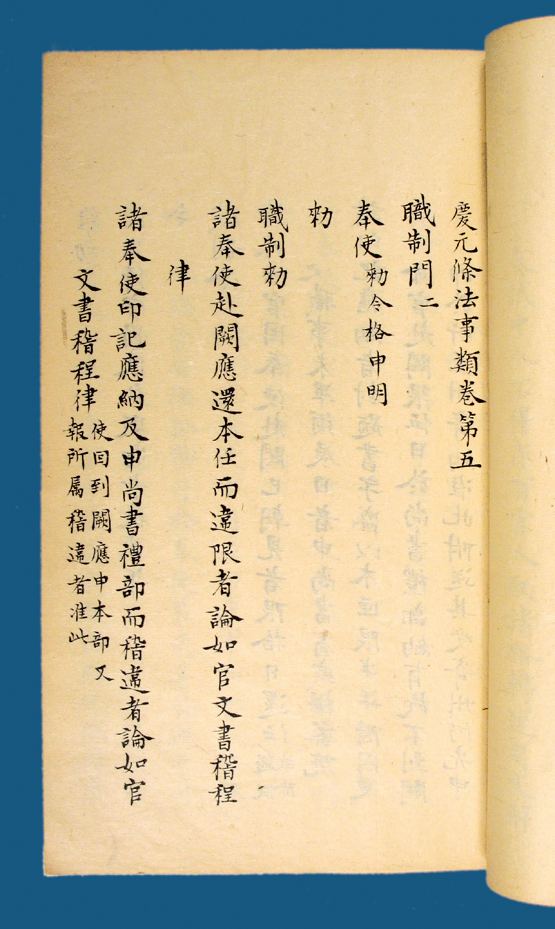 慶元條法事類卷第五
職制門二
奉使勑令格申明
勑
職制勑
諸奉使赴闕應還本任而違限者論如官文書稽程
律
諸奉使印記應納及申尚書禮部而稽違者論如官
文書稽程律使回到闕應申本部又
報所属稽違者准此